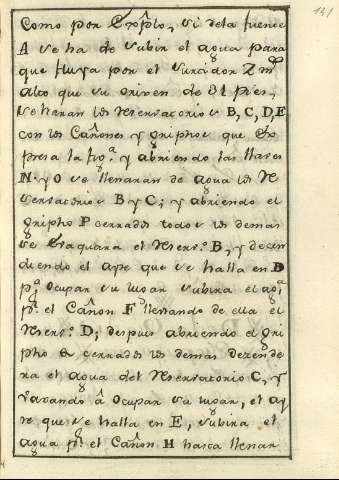 141
Como por Exp̃lo, si dela fuente
A se ha de subir el agua para
que fluya por el surtidor Z m.
alto que su origen de 31 pies,
se haran los Reservatorios B, C, D, E
con los Cañones y griphos que Ex
presa la fig.ª y abriendo las llaves
N. y O se llenaran de agua los Re
servatorios B y C; y abriendo el
gripho P cerrados todos los demas
se Evaquara el Reserv.º B, y decen
diendo el ayre que se halla en D
p.ª ocupar su lugar subira el ag.ª
p.r el Cañon F llenando de ella el
Reserv.º D; despues abriendo el gri
pho cerrados los demas decende
ra el agua del Reservatorio C, y
vaxando â ocupar su lugar, el ay
re que se halla en E, subira el
agua p.r el Cañon H hasta llenar